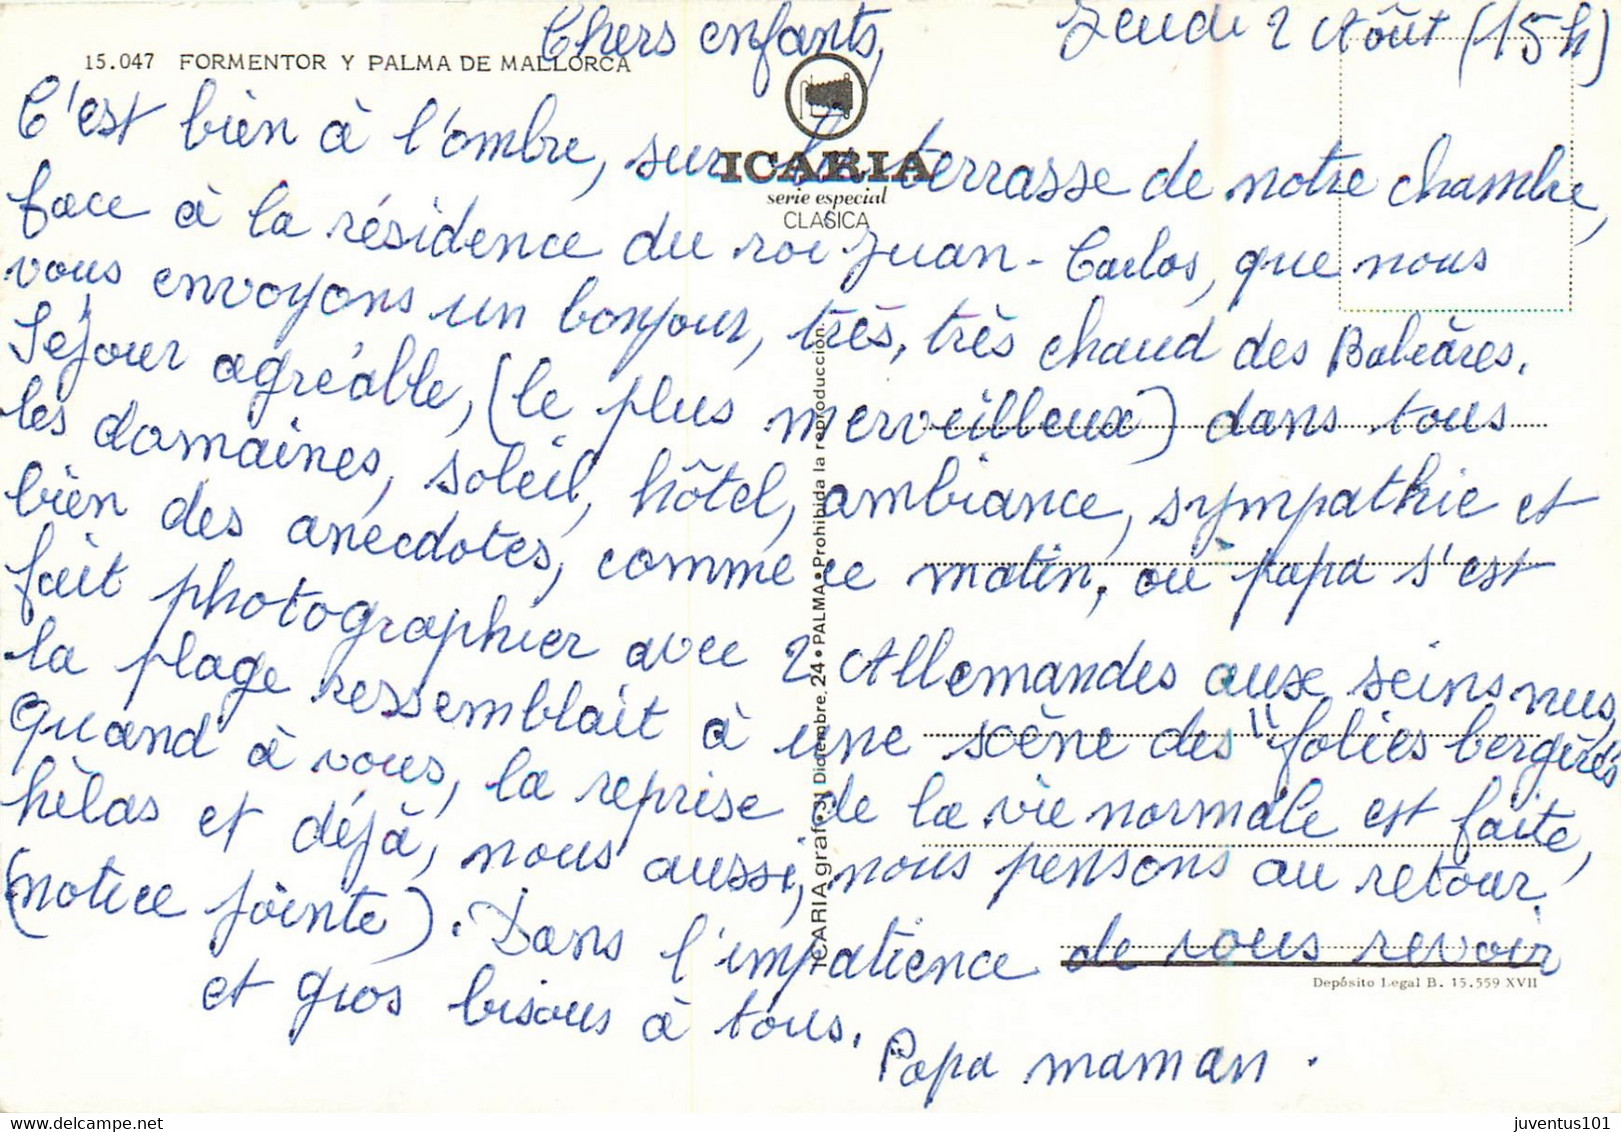 Chers enfants, Jeudi 2 Août (15h)
15.047 FORMENTOR Y PALMA DE MALLORCA
C'est bien à l'ombre, sur la terrasse de notre chambre,
ICARIA
serie especial
CLASICA
face à la résidence du roi Juan-Carlos, que nous
vous envoyons un bonjour, très, très chaud des Baléares.
Séjour agréable, (le plus merveilleux) dans tous
les domaines, soleil, hôtel, ambiance, sympathie et
bien des anecdotes, comme ce matin, où papa s'est
fait photographier avec 2 Allemandes aux seins nus,
la plage ressemblait à une scène des "folies bergères"
Quand à vous, la reprise de la vie normale est faite,
hèlas et déjà, nous aussi, nous pensons au retour
(notice jointe). Dans l'impatience de vous revoir
et gros bisous à tous.
Papa maman.
ICARIA graf • 31 Diciembre, 24 • PALMA • Prohibida la reproducción.
Depósito Legal B. 15.559 XVII
juventus101